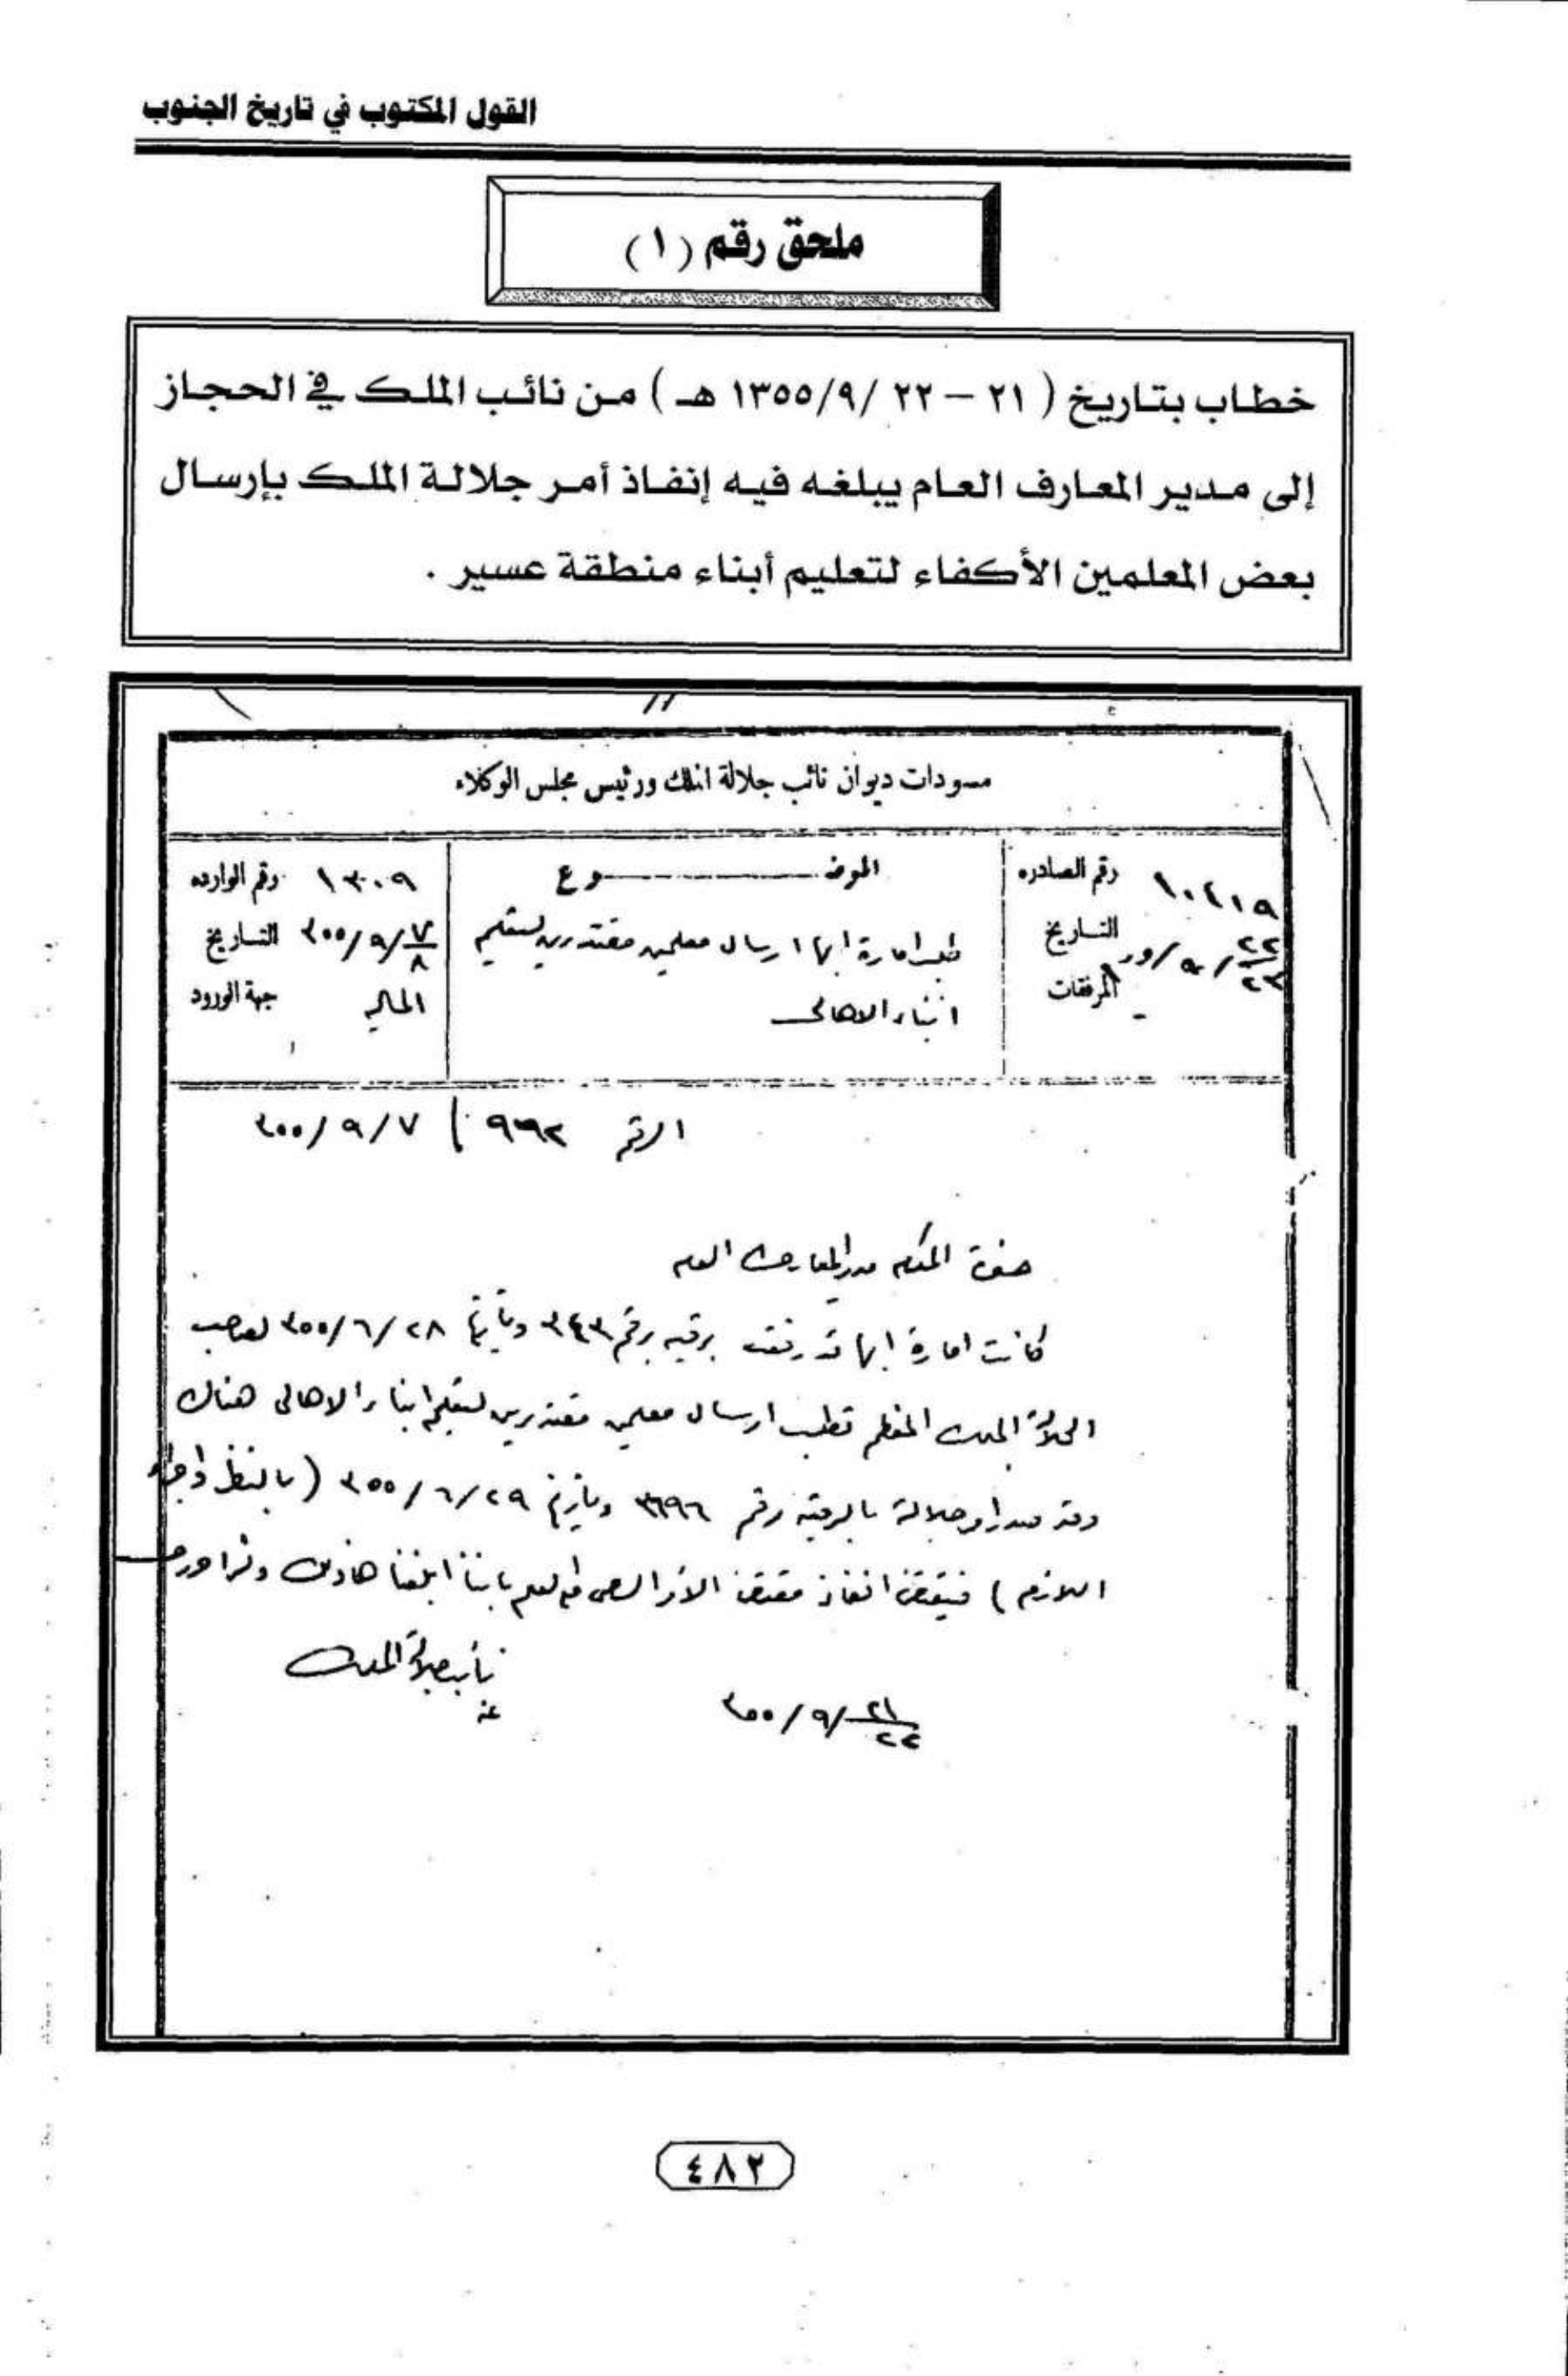 القول المكتوب في تاريخ الجنوب
ملحق رقم (١)
خطاب بتاريخ (٢١ – ٢٢ /١٣٥٥/٩ هـ) من نائب الملك في الحجاز
إلى مدير المعارف العام يبلغه فيه إنفاذ أمر جلالة الملك بإرسال
بعض المعلمين الأكفاء لتعليم أبناء منطقة عسير .
مسودات ديوان نائب جلالة الملك ورئيس مجلس الوكلاء
رقم الصادره ١٠٤١٩
التاريخ
المرفقات -
الموضوع
طلب امارة ابها ارسال معلمين مقتدرين لتعليم
ابناء الاهالي
رقم الوارده ١٣٠٩
التاريخ ٧/٨ /٩/ ٣٥٥
جهة الورود المالية
الرقم ٩٩٢ ٧ / ٩ / ٣٥٥
المكرم مدير المعارف العام
كانت امارة ابها قد رفعت برقيه برقم ٣٤٣ وتاريخ ٢٨ / ٦ / ٣٥٥ لصاحب
الجلالة الملك المعظم تطلب ارسال معلمين مقتدرين لتعليم ابناء الاهالي هناك
وقد صدر امر جلالة بالبرقية رقم ٣٦٩٦ وتاريخ ٢٩ / ٦ / ٣٥٥ (بالنظر واجراء
اللازم) فيقتضي انفاذ مقتضى الامر السامي
نائب جلالة الملك
عنه
٢١/٢٢ / ٩ / ٣٥٥
٤٨٢